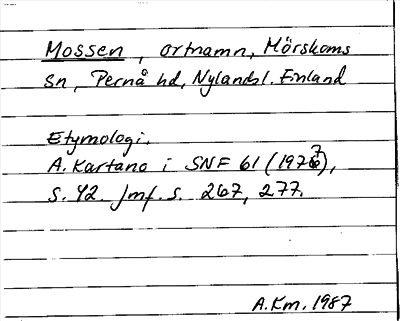 Mossen, ortnamn, Mörskoms
sn, Pernå hd, Nylands l. Finland
Etymologi.
A. Kartano i SNF 61 (1977),
s. 42. Jmf. s. 267, 277.
A.Km. 1987